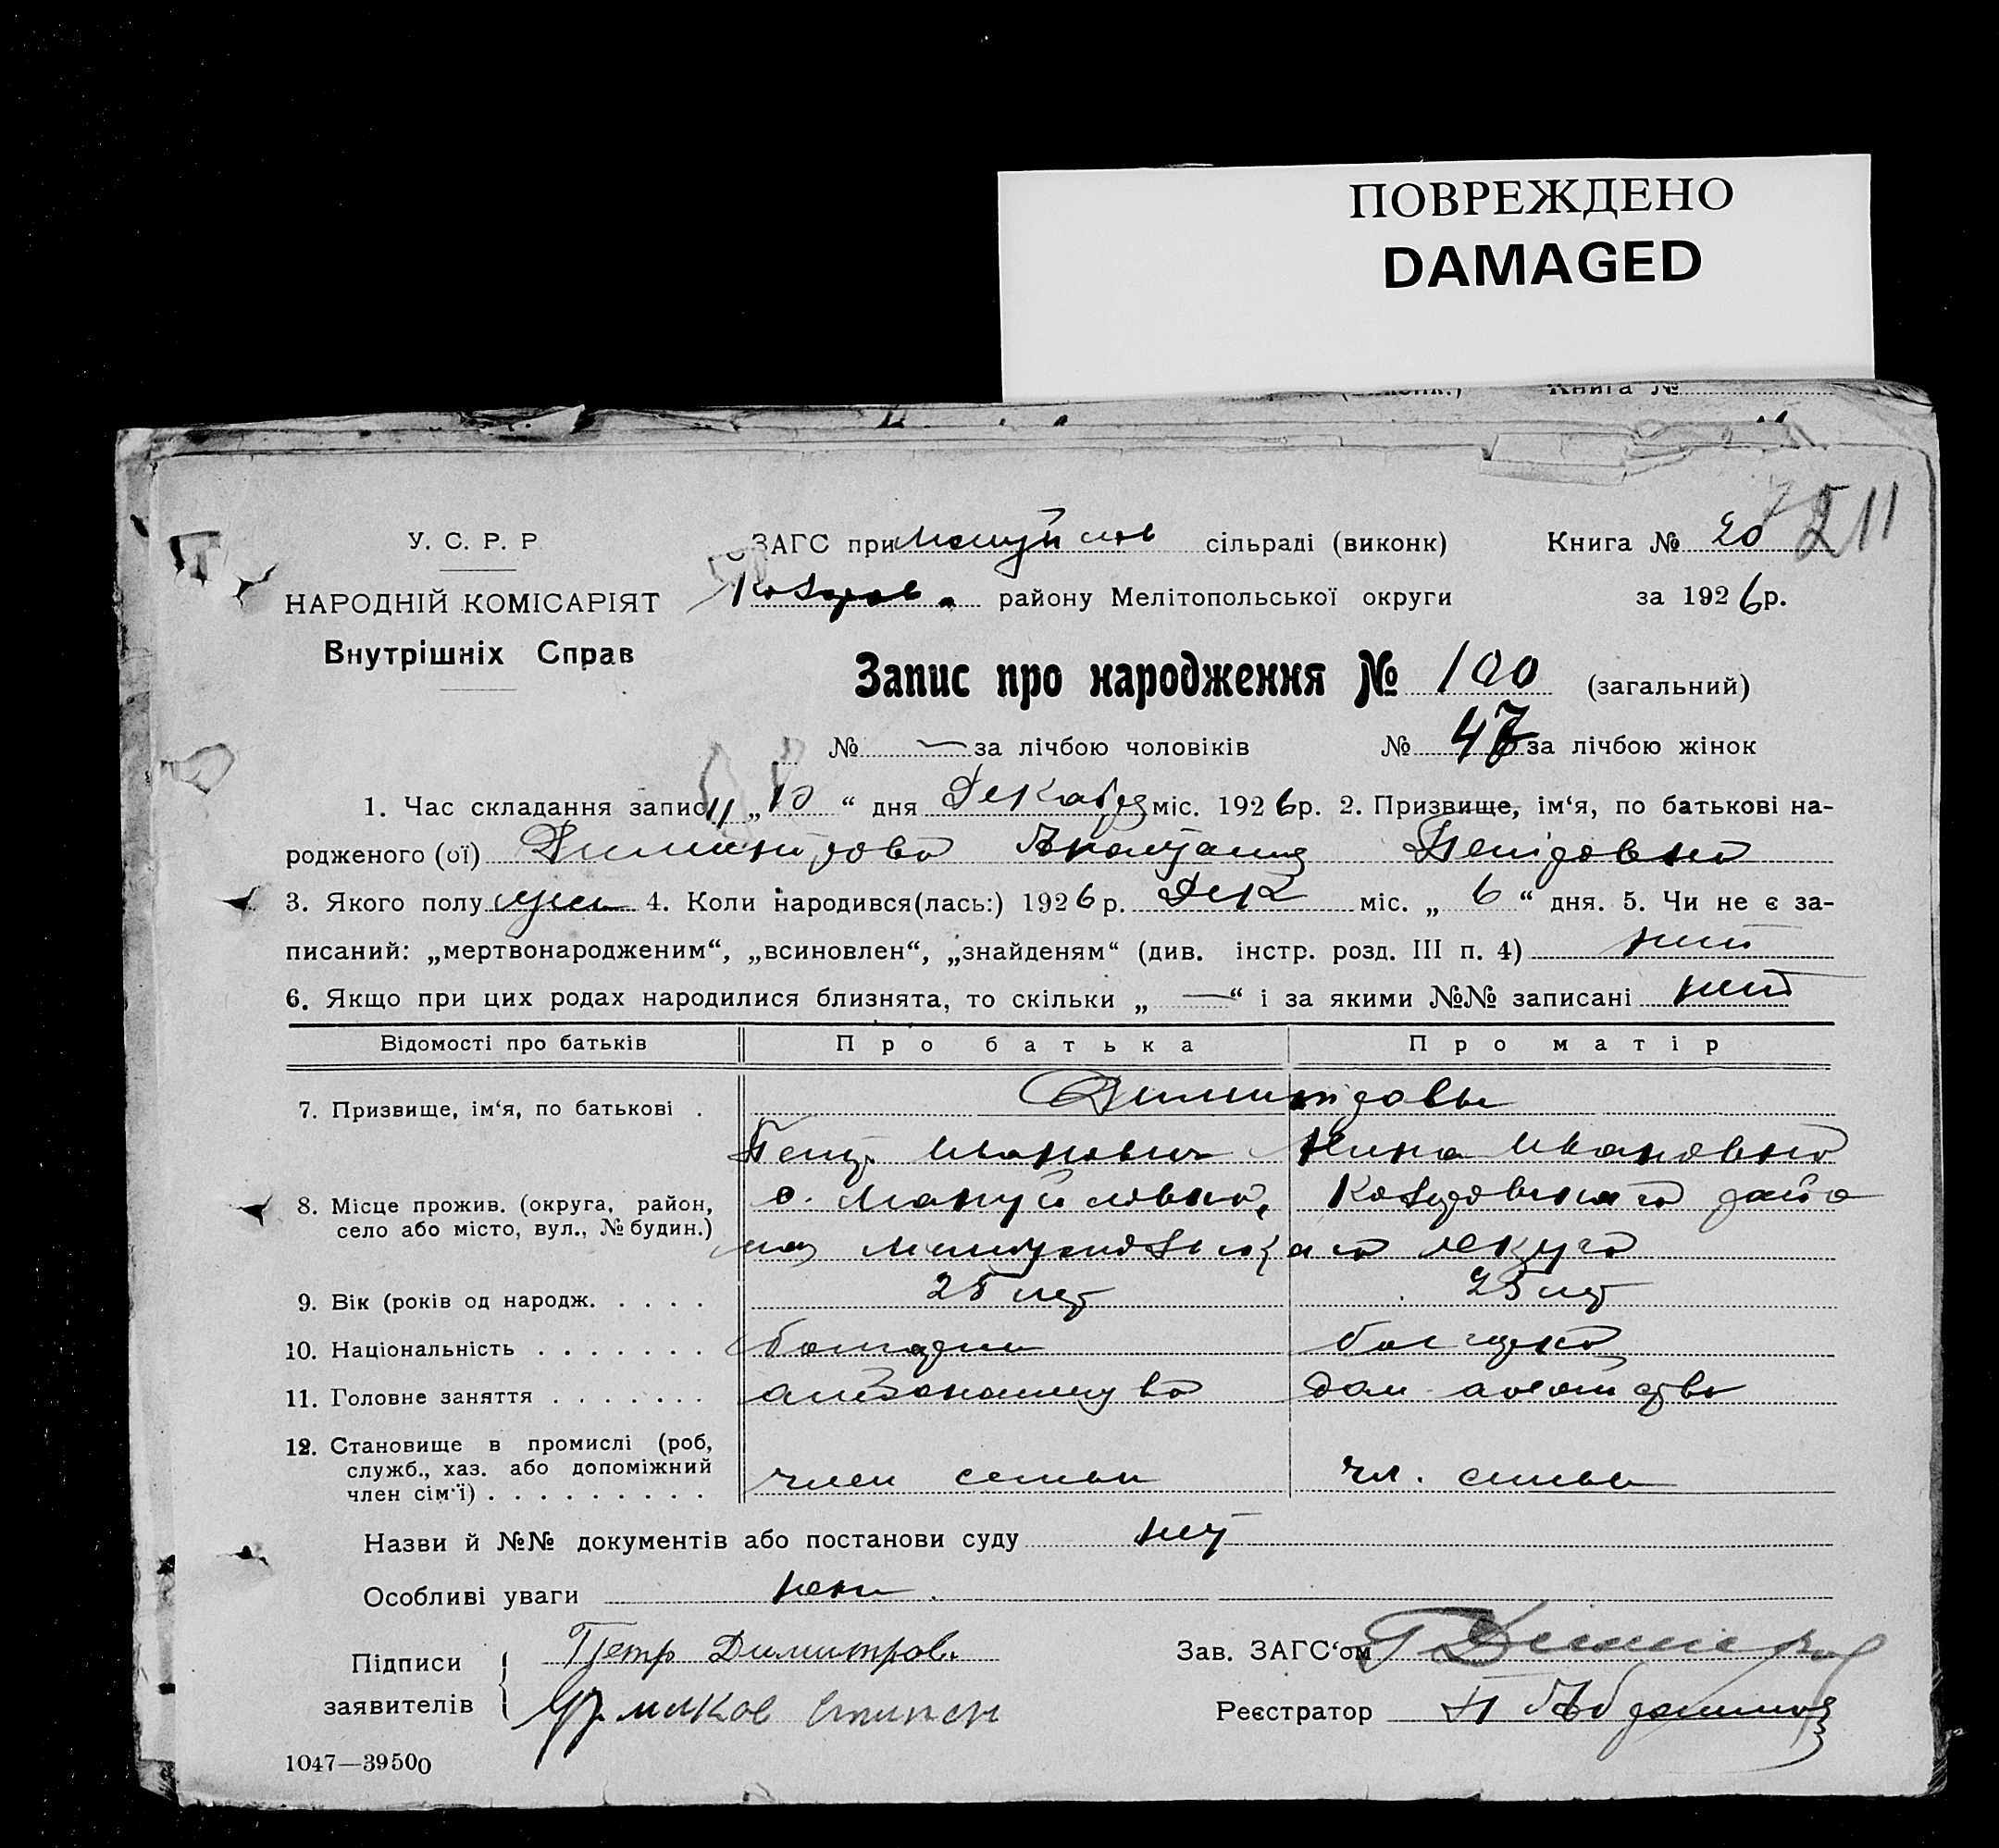 ПОВРЕЖДЕНО
DAMAGED
Книга №
211
У. С. Р. Р
ЗАГС при Мануйлов сільраді (виконк) Книга № 20
НАРОДНІЙ КОМІСАРІЯТ
району Мелітопольської округи за 1926 р.
Внутрішніх Справ
Запис про народження № 100 (загальний)
№ — за лічбою чоловіків № 47 за лічбою жінок
1. Час складання запису „10“ дня Декабря міс. 1926 р. 2. Призвище, ім‘я, по батькові на-
родженого (ої) Димитрова Анастасия Петровна
3. Якого полу жен 4. Коли народився(лась:) 1926 р. Дек міс. „6“ дня. 5. Чи не є за-
писаний: „мертвонародженим“, „всиновлен“, „знайденям“ (див. інстр. розд. III п. 4) нет
6. Якщо при цих родах народилися близнята, то скільки „—“ і за якими №№ записані нет
Відомості про батьків Про батька Про матір
7. Призвище, ім‘я, по батькові . Димитровы
Петр Иванович Нина Ивановна
8. Місце прожив. (округа, район, село або місто, вул., № будин.) с. Мануйловка,
округа
9. Вік (років од народж. . . . . 25 лет 25 лет
10. Національність . . . . . . . болгарин болгарка
11. Головне заняття . . . . . . . дом
12. Становище в промислі (роб,
служб., хаз. або допоміжний
член сім‘ї) . . . . . . . . . член семьи чл. семьи
Назви й №№ документів або постанови суду нет
Особливі уваги нет
Підписи Петр Димитров. Зав. ЗАГС‘ом
заявителів Реєстратор
1047—39500